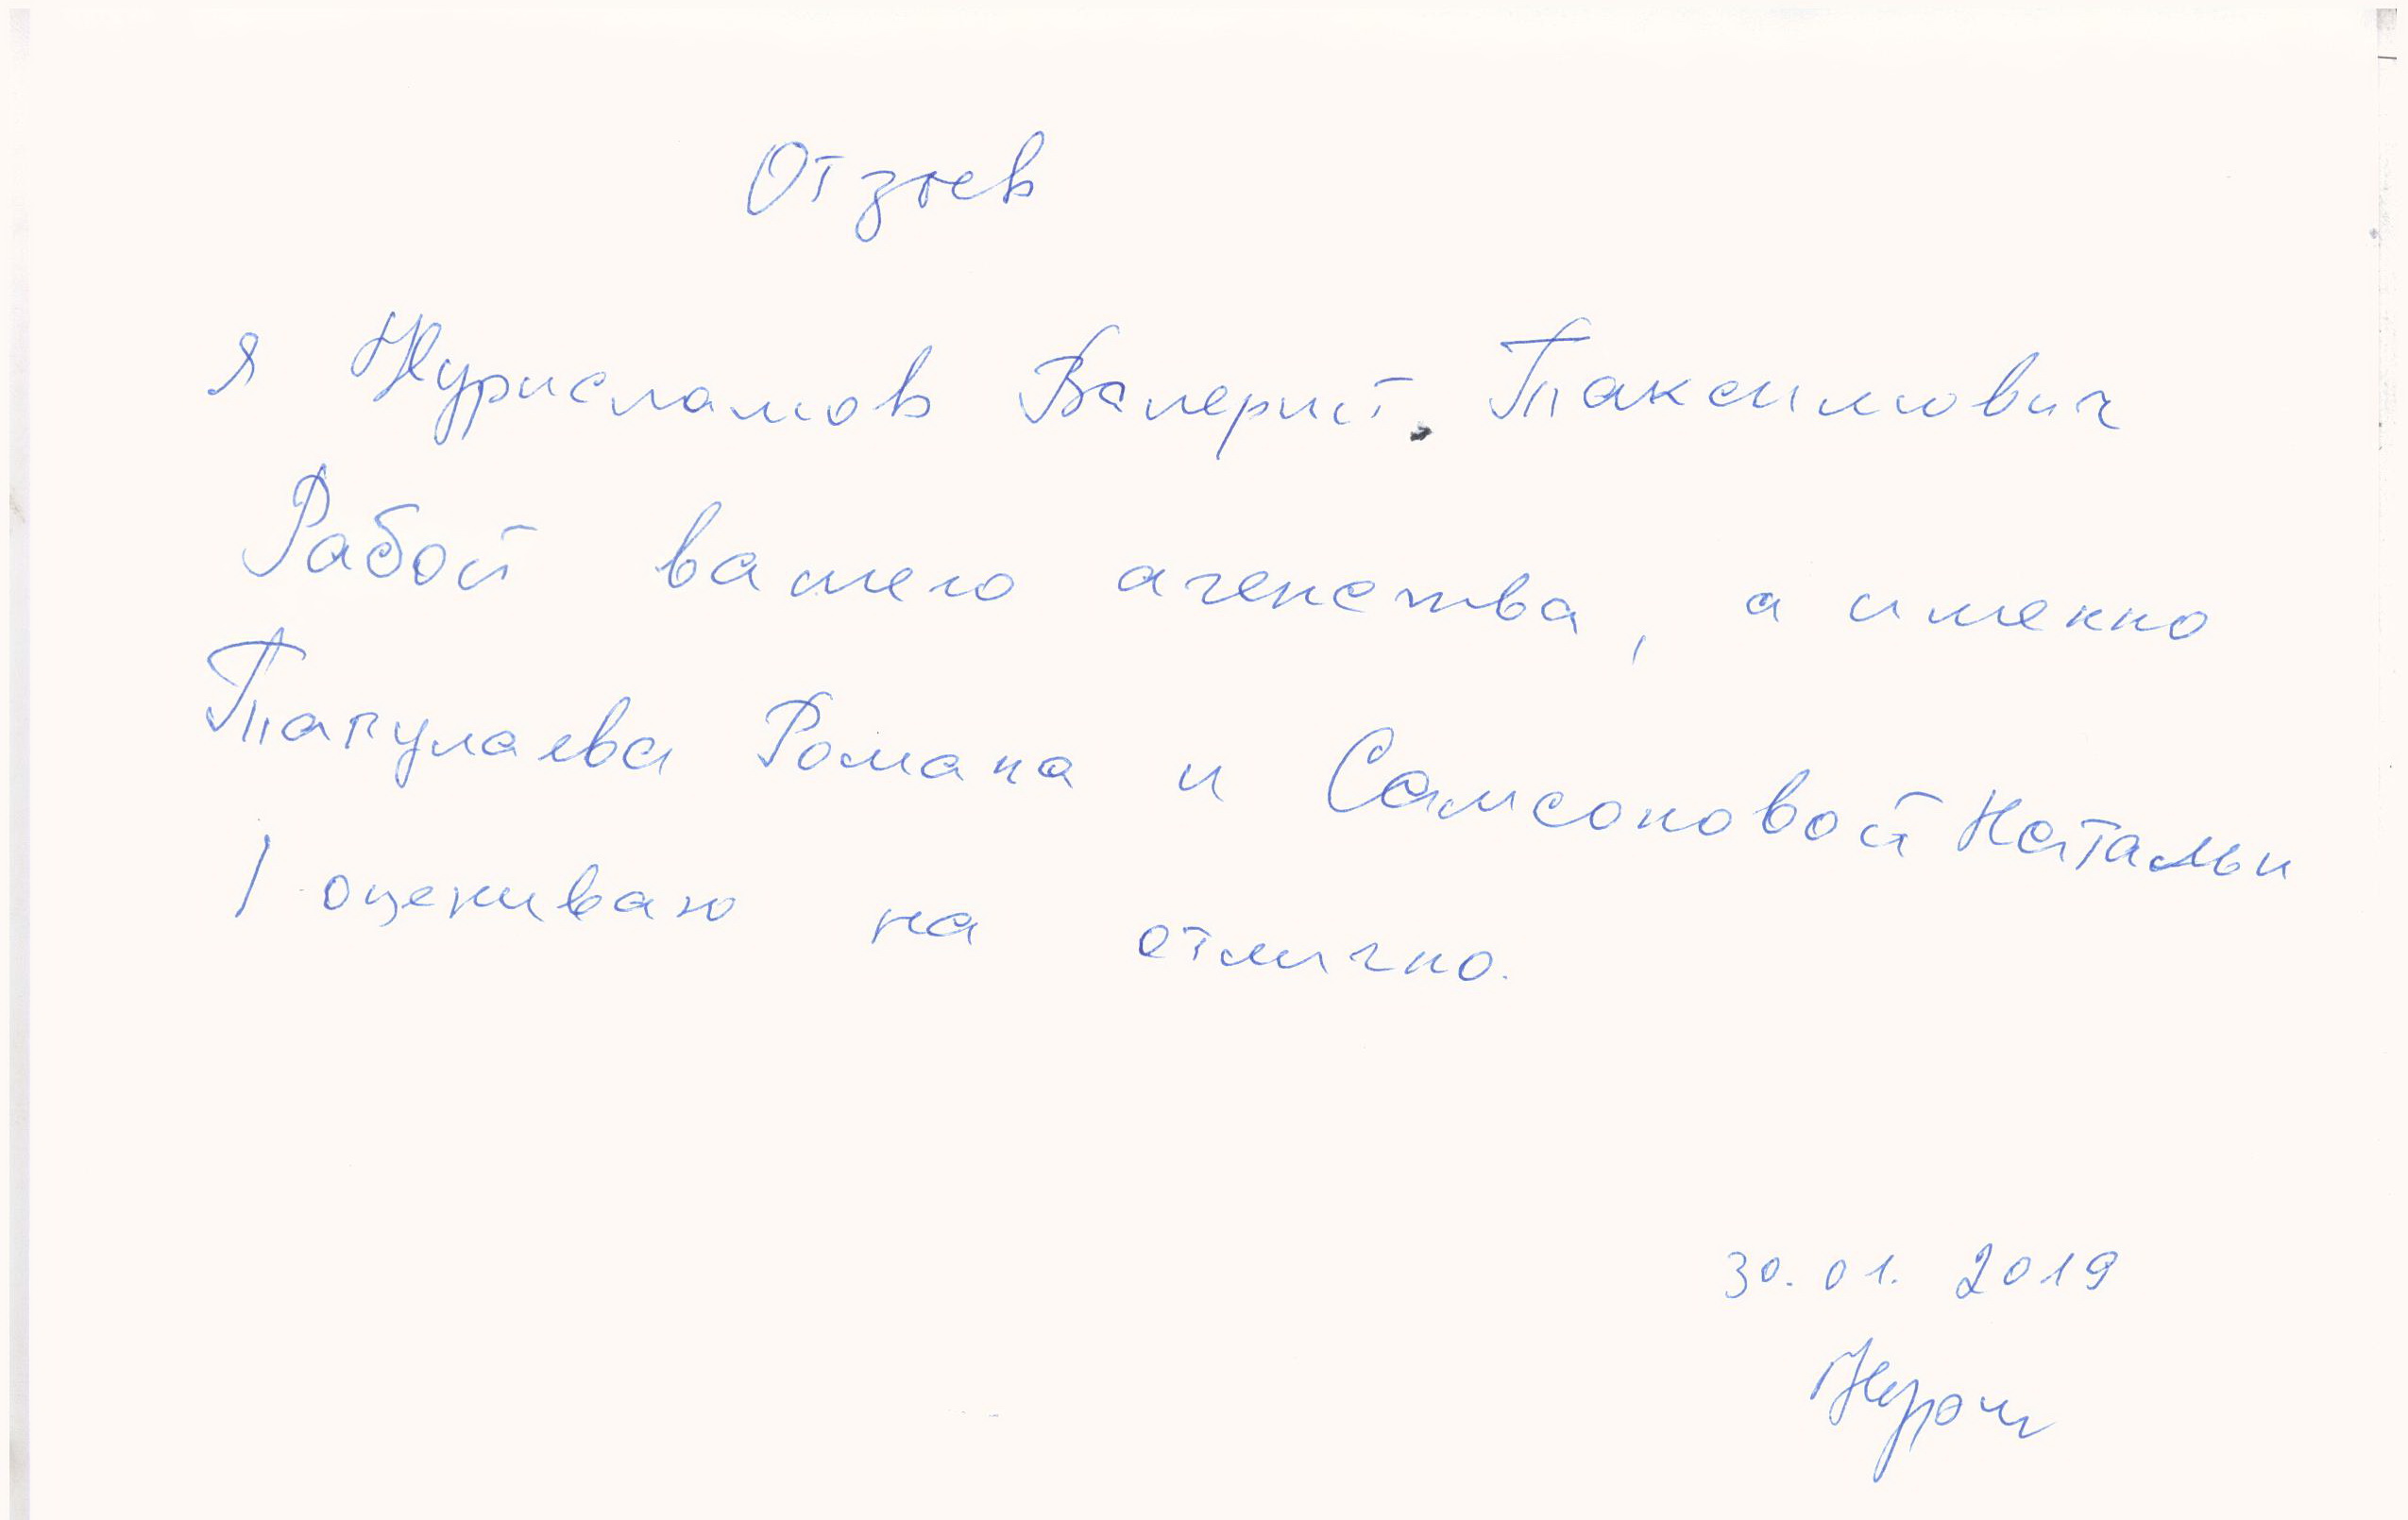 Отзыв
я Нурисламов Валерий Таксимович
Рабой вашего агенства, а именно
Тапулаева Романа и Самсоновой Натальи
/ оцениваю на отлично.
30.01.2019